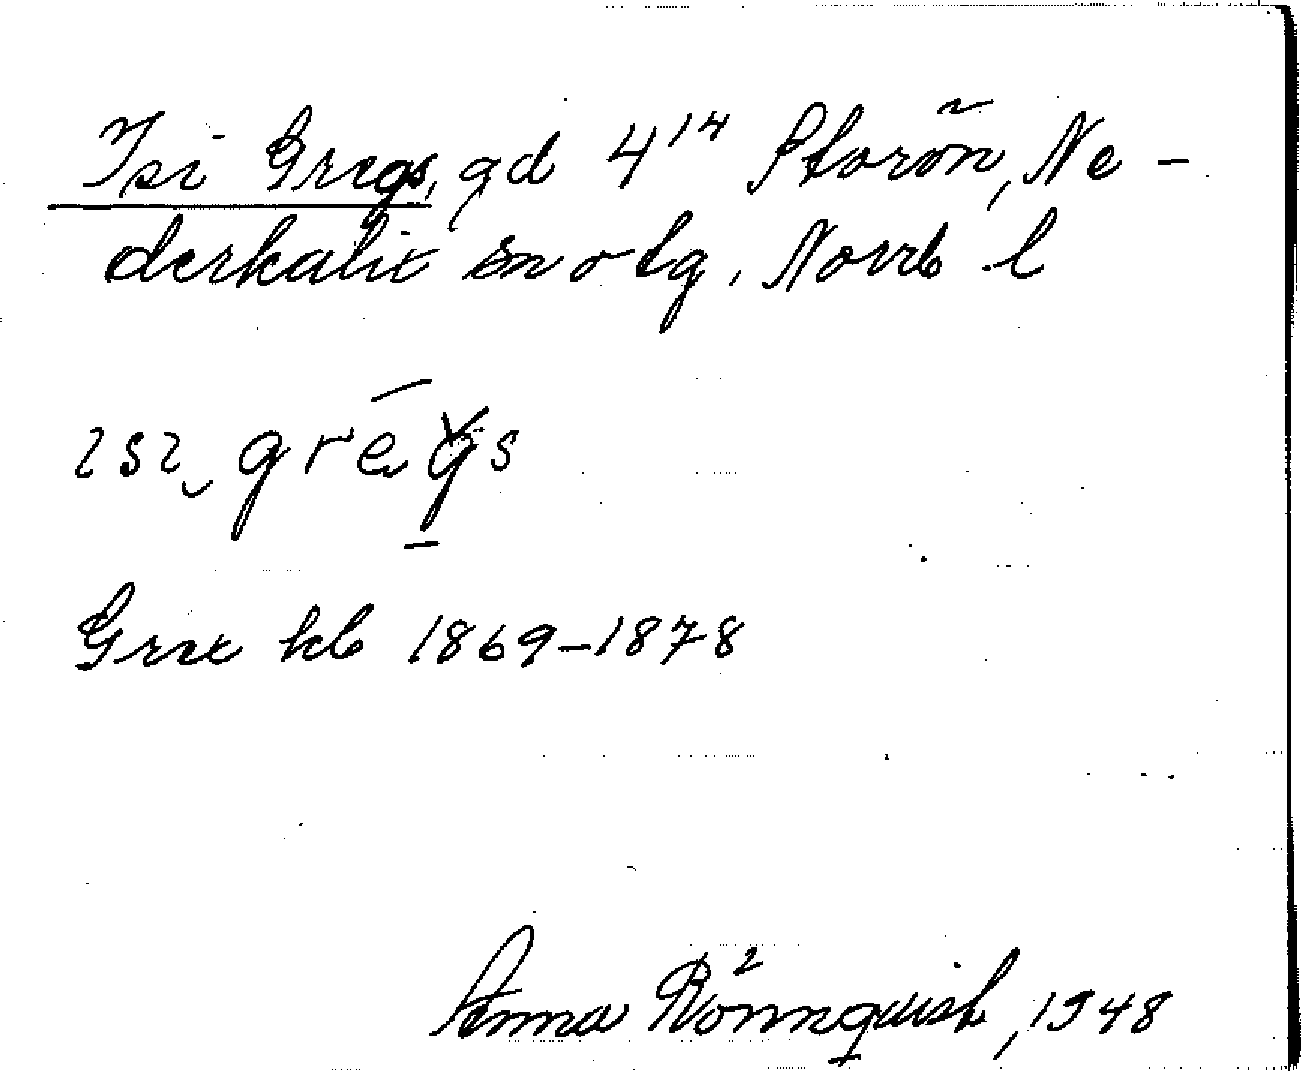 Isi Gregs, gd 4¹⁴ Storön, Ne-
derkalix sn o tg, Norrb l
ısı gregs
Grex kb 1869-1878
Anna Rönnquist, 1948